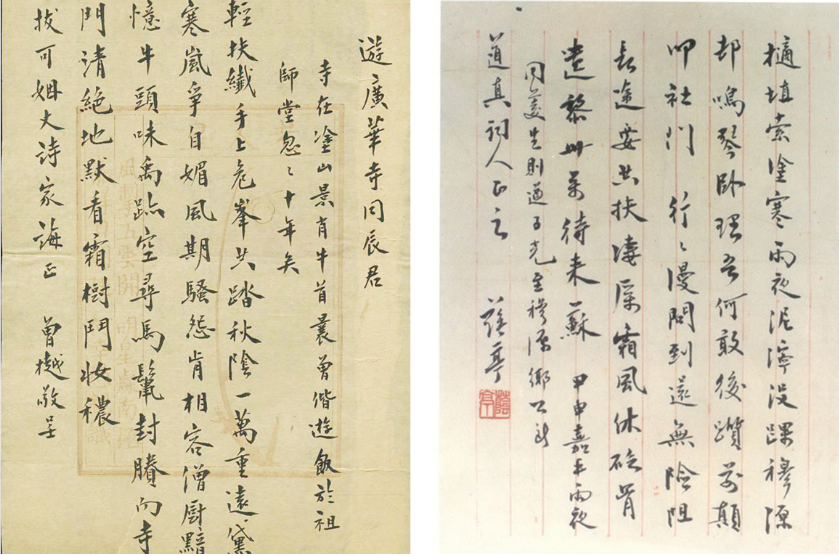 遊廣華寺同辰君
寺在塗山景肖牛首曩曾偕遊飯於祖
師堂忽〻十年矣
輕扶纖手上危峯共踏秋陰一萬重遠黛
寒嵐爭自媚風期騷怨肯相容僧廚黯
憶牛頭味禹跡空尋馬鬣封賸向寺
門清絕地默看霜樹鬥妝穠
拔可姻丈詩家誨正 曾樾敬呈
擿埴索塗寒雨夜泥濘沒踝穆源
邨鳴琴臥理吾何敢後躓前顛
叩社門 行〻漫問到還無險阻
長途要共扶淒厲霜風休砭骨
遺黎卅萬待來蘇 甲申嘉平雨夜
同生則通子光至穆源鄉公所
道真詞人正之 亭